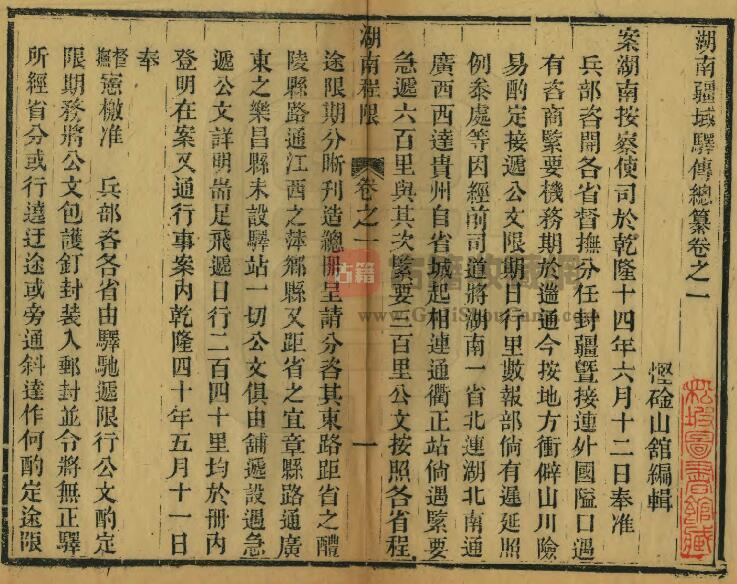 湖南疆域驛傳總纂卷之一
慳硷山舘編輯
案湖南按察使司於乾隆十四年六月十二日奉准
兵部咨開各省督撫分任封疆暨接連外國隘口遇
有咨商緊要機務期於遄通今按地方衝僻山川險
易酌定接遞公文限期日行里數報部倘有遲延照
例叅處等因經前司道將湖南一省北連湖北南通
廣西西達貴州自省城起相連通衢正站倘遇緊要
急遞六百里與其次緊要三百里公文按照各省程
湖南程限 卷之一 一
途限期分晰刋造總冊呈請分咨其東路距省之醴
陵縣路通江西之萍鄉縣又距省之宜章縣路通廣
東之樂昌縣未設驛站一切公文俱由舖遞設遇急
遞公文詳明耑足飛遞日行二百四十里均於冊內
登明在案又通行事案內乾隆四十年五月十一日
奉
督撫憲檄准 兵部咨各省由驛馳遞限行公文酌定
限期務將公文包護釘封裝入郵封並令將無正驛
所經省分或行遶迂途或旁通斜達作何酌定途限
松坡圖書館藏
古籍